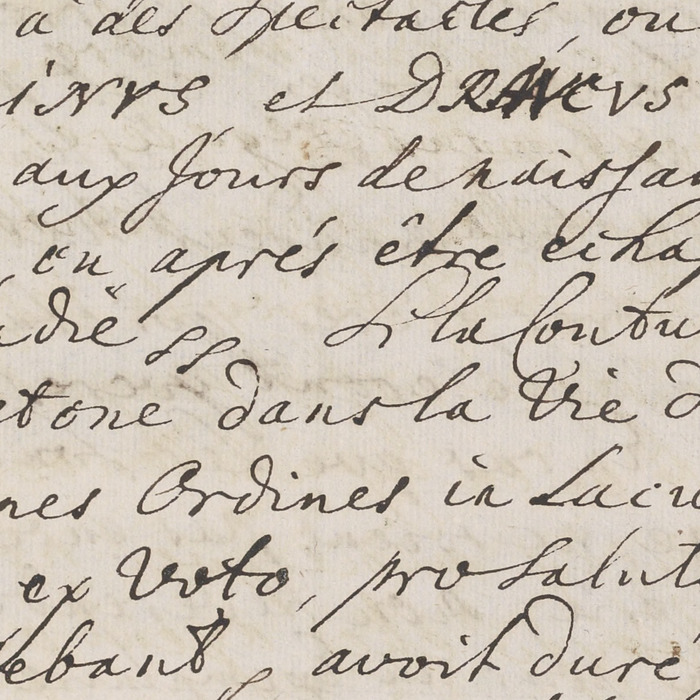 à des Spectacles, ou
INVS et DRACVS
aux Jours de naissan
, ou après être echap
adie
Si la Coutu
etone dans la Vie d
nes Ordines in Lacu
ex Voto, pro Salut
iebant, avoit duré